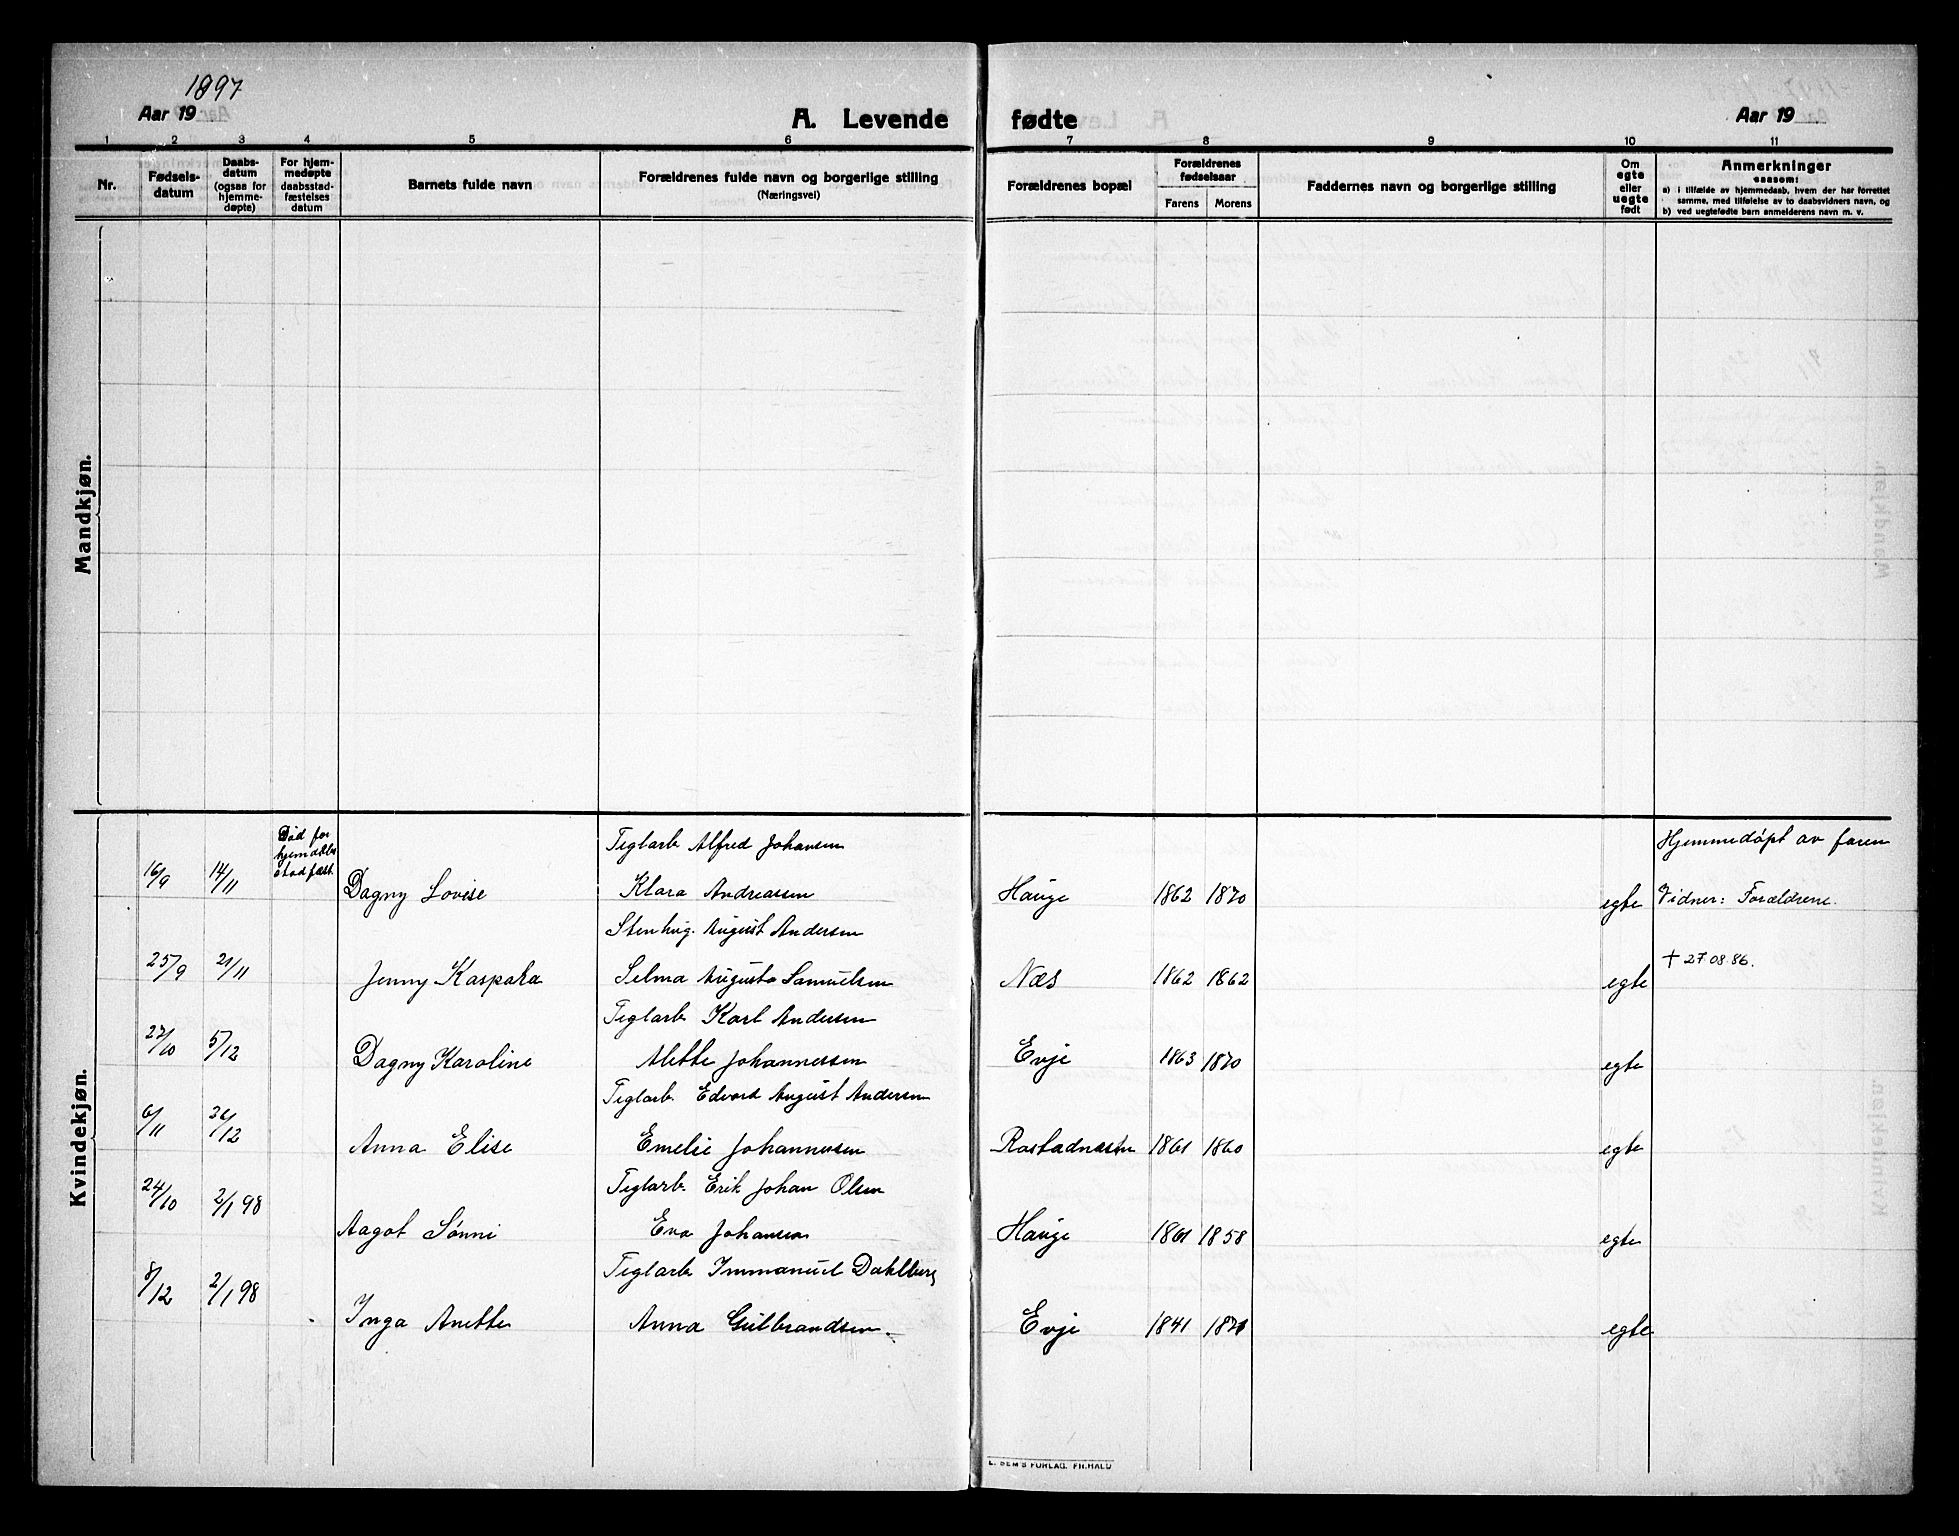 1897
Aar 19
A. Levende fødte
Aar 19
1 2 3 4 5 6 7 8 9 10 11
Nr.
Fødsels-
datum
Daabs-
datum
(ogsaa for
hjemme-
døpte)
For hjem-
medøpte
daabsstad-
fæstelses
datum
Barnets fulde navn
Forældrenes fulde navn og borgerlige stilling
(Næringsvei)
Forældrenes bopæl
Forældrenes
fødselsaar
Farens Morens
Faddernes navn og borgerlige stilling
Om
egte
eller
uegte
født
Anmerkninger
saasom:
a) i tilfælde av hjemmedaab, hvem der har forrettet
samme, med tilføielse av to daabsvidners navn, og
b) ved uegtefødte barn anmelderens navn m. v.
Mandkjøn.
Kvindekjøn.
Død for
hjemdaabs
stadfæst.
Teglarb. Alfred Johansen
Hjemmedøpt av faren
16/9 14/11 Dagny Lovise Klara Andreassen Hauge 1862 1870 egte Vidner: Forældrene.
Stenhug. August Andersen
25/9 21/11 Jenny Kaspara Selma Augusta Samuelsen Næs 1862 1862 egte † 27 08.86.
Teglarb. Karl Andersen
27/10 5/12 Dagny Karoline Alette Johannessen Evje 1863 1870 egte
Teglarb. Edvard August Andersen
6/11 26/12 Anna Elise Emelie Johannessen Rostadnæstn 1861 1860 egte
Teglarb. Erik Johan Olsen
24/10 2/1 98 Aagot Sønni Eva Johansen Hauge 1861 1858 egte
Teglarb. Immanuel Dahlberg
8/12 2/1 98 Inga Anette Anna Gulbrandsen. Evje 1841 1871 egte
E. SEM'S FORLAG. FR.HALD